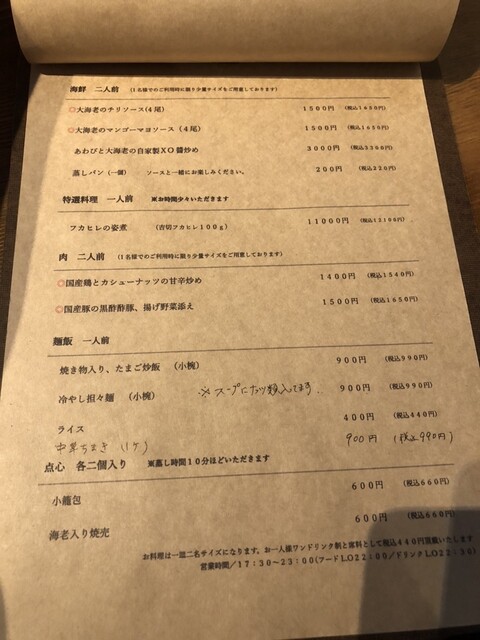 海鮮　二人前　（1名様でのご利用時に限り少量サイズをご用意しております）
◎大海老のチリソース（4尾）　1500円　（税込1650円）
◎大海老のマンゴーマヨソース（4尾）　1500円　（税込1650円）
あわびと大海老の自家製XO醬炒め　3000円　（税込3300円）
蒸しパン（一個）　ソースと一緒にお楽しみください。　200円　（税込220円）
特選料理　一人前　※お時間少々いただきます
フカヒレの姿煮　（吉切フカヒレ100g）　11000円　（税込12100円）
肉　二人前　（1名様でのご利用時に限り少量サイズをご用意しております）
◎国産鶏とカシューナッツの甘辛炒め　1400円　（税込1540円）
◎国産豚の黒酢酢豚、揚げ野菜添え　1500円　（税込1650円）
麺飯　一人前
焼き物入り、たまご炒飯　（小椀）　900円　（税込990円）
冷やし担々麺　（小椀）　※スープにナッツ類入ってます.　900円　（税込990円）
ライス　400円　（税込440円）
中華ちまき（1ケ）　900円　（税込990円）
点心　各二個入り　※蒸し時間10分ほどいただきます
小籠包　600円　（税込660円）
海老入り焼売　600円　（税込660円）
お料理は一皿二名サイズになります。お一人様ワンドリンク制と席料として税込440円頂戴いたします
営業時間／17:30～23:00(フードLO22:00／ドリンクLO22:30)